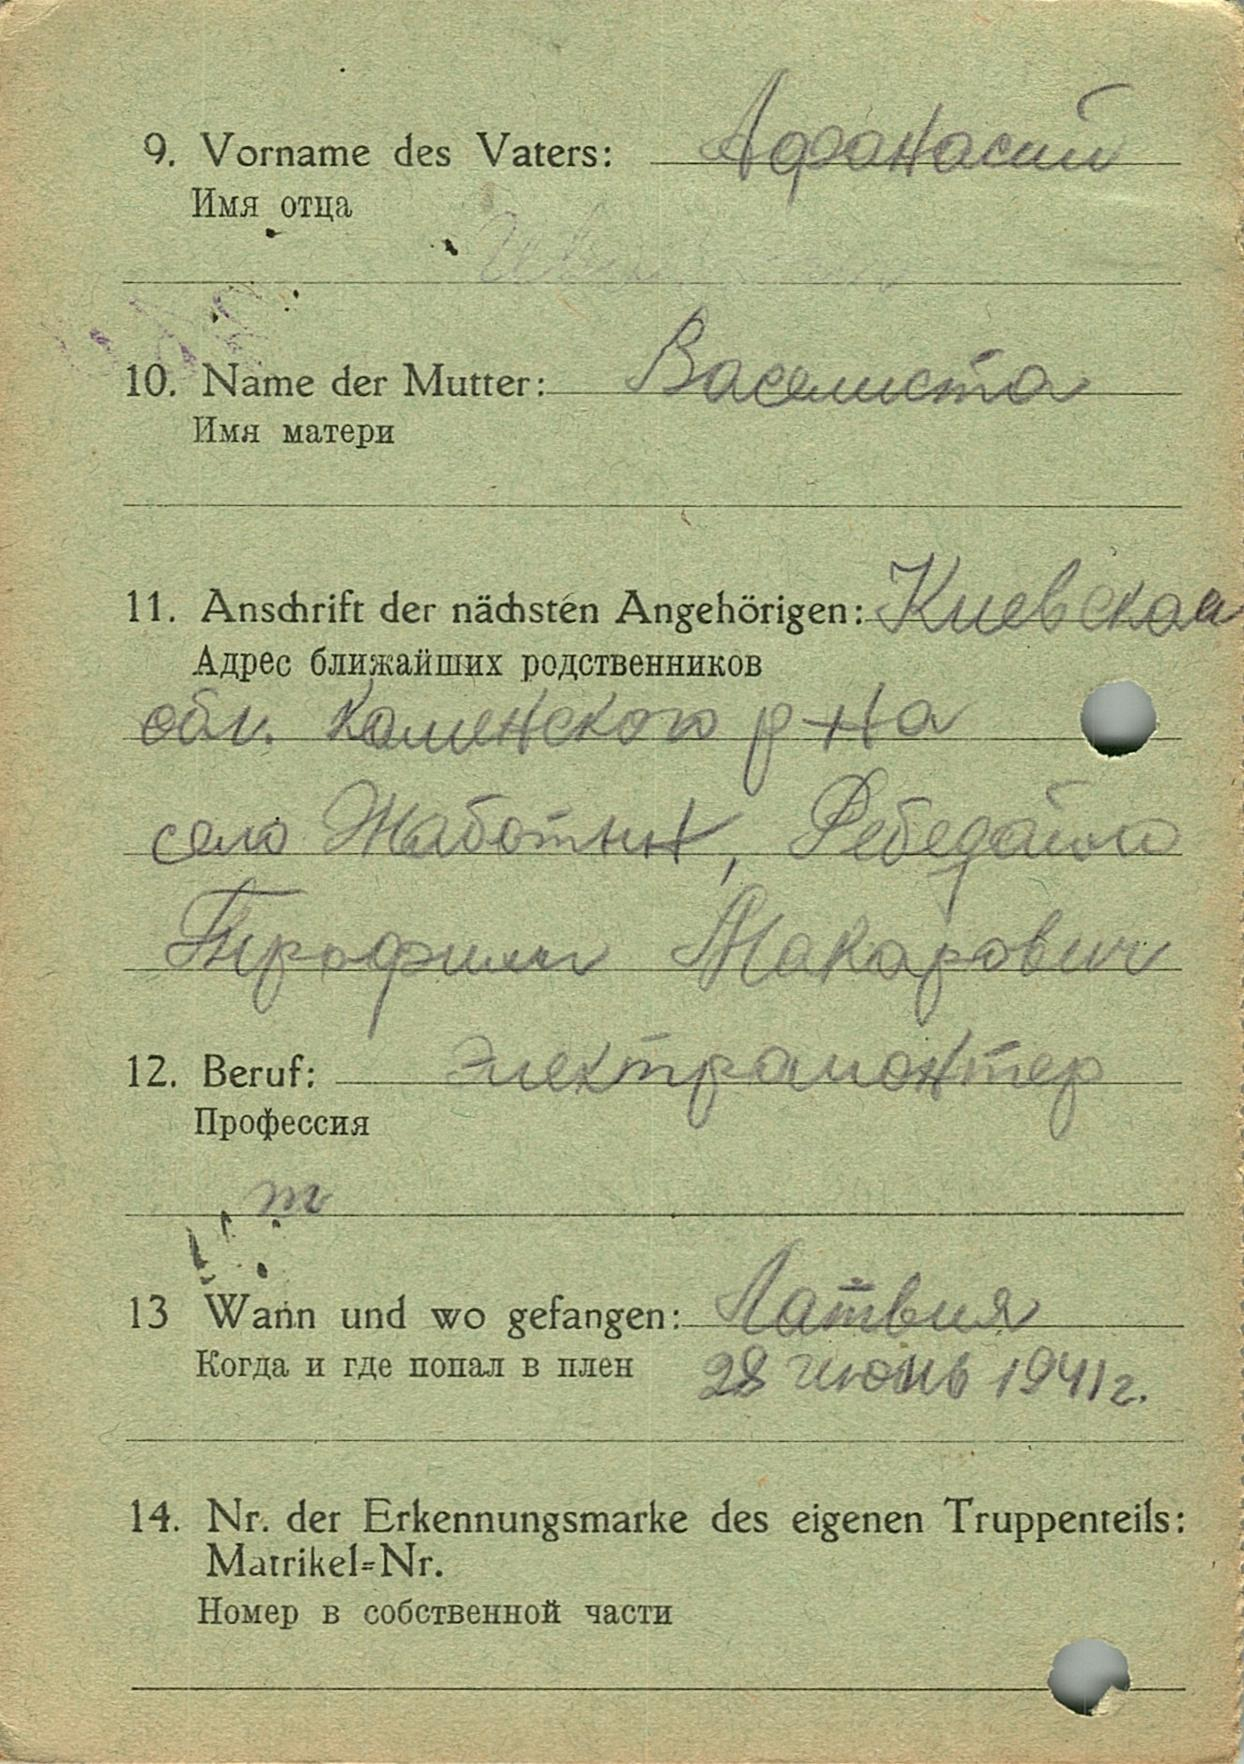 9. Vorname des Vaters: Афанасий
Имя отца
10. Name der Mutter: Васелиста
Имя матери
11. Anschrift der nächsten Angehörigen: Киевская
Адрес ближайших родственников
обл. Каменского р-на
село Жаботин, Ребедайло
Трофим Макарович
12. Beruf: электрамонтер
Профессия
m
13 Wann und wo gefangen: Латвия
Когда и где попал в плен 28 июнь 1941 г.
14. Nr. der Erkennungsmarke des eigenen Truppenteils:
Matrikel=Nr.
Номер в собственной части